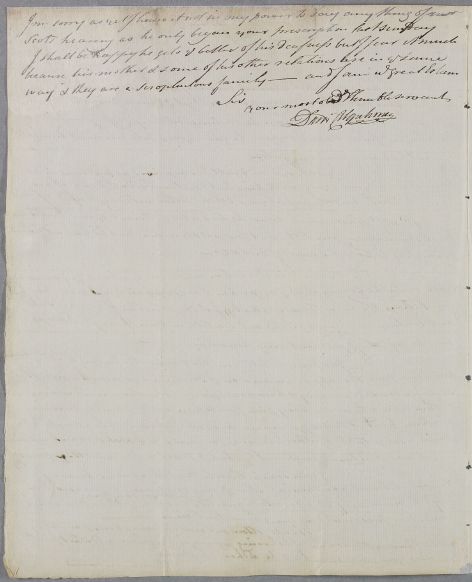 I am sorry as yet I have it not in my power to say any thing of
Scots hearing as he only began your prescription last Sunday
I shall be happy he gets y better of his Deafness but I fear it much
because his mother & some of his other relations have in y same
way & they are a scrophulous family — and I am w great Esteem
Sir
your most obdt Humble servant